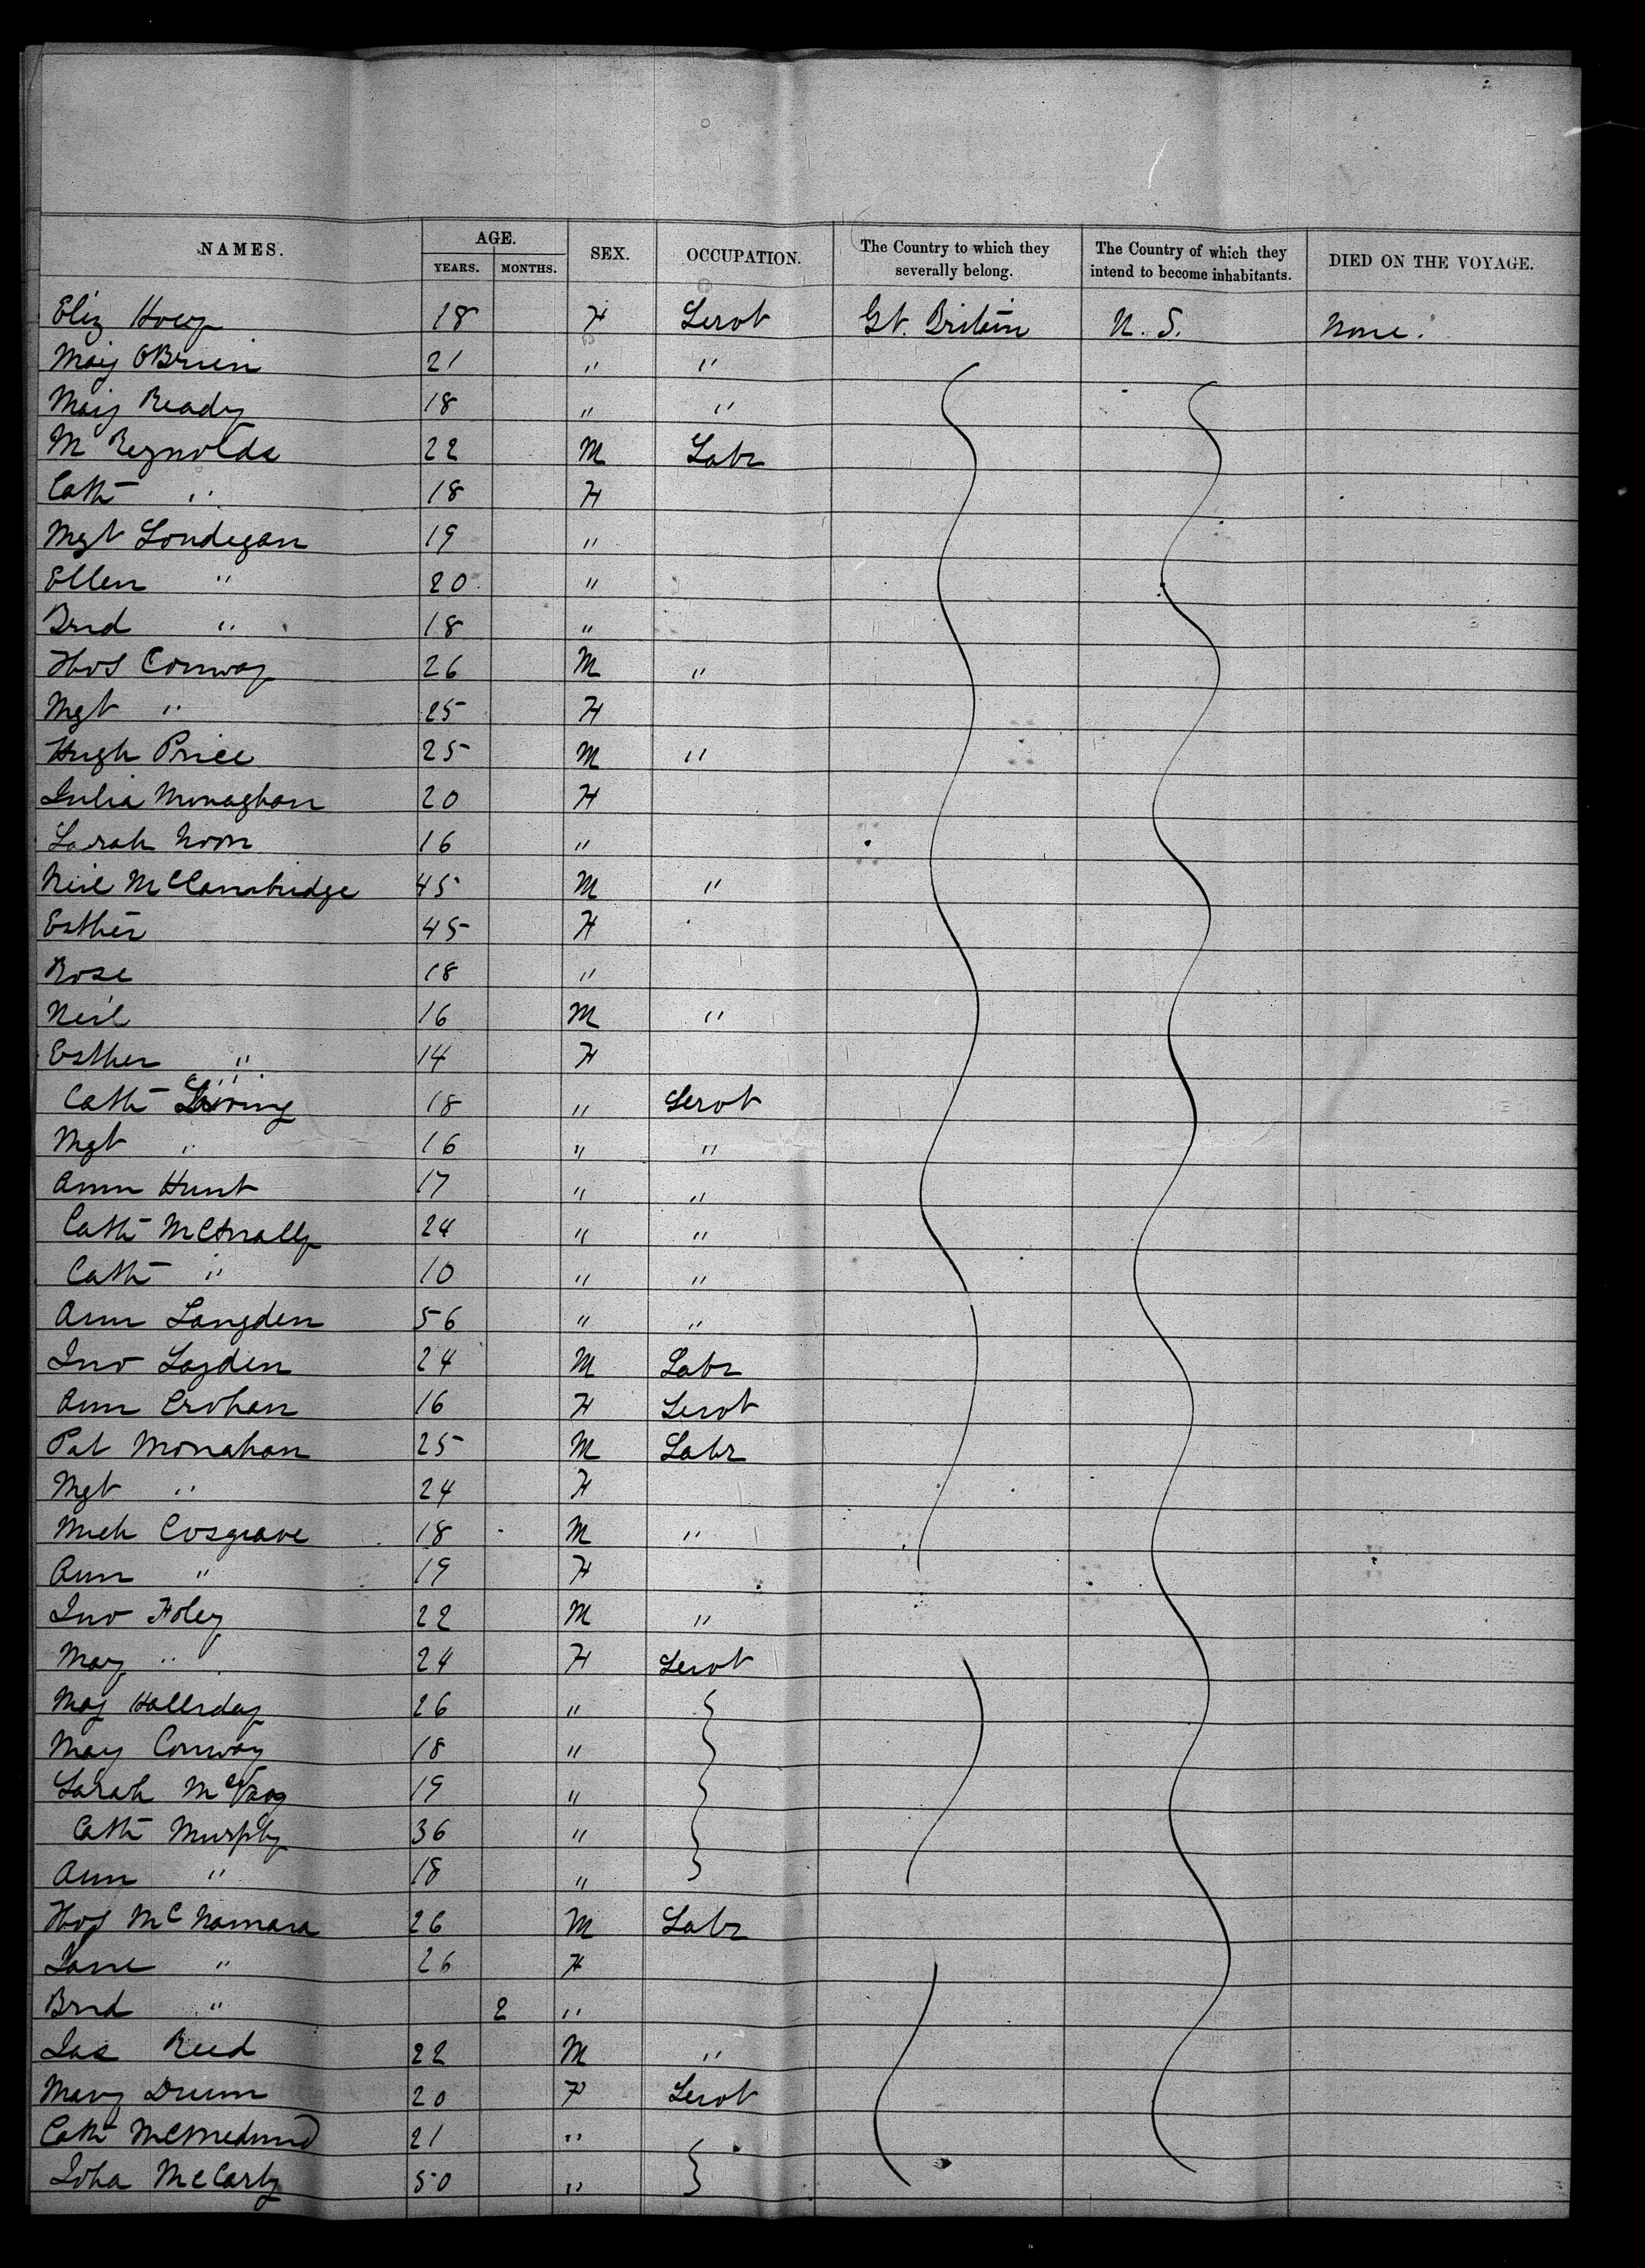 NAMES. AGE. SEX. OCCUPATION. The Country to which they severally belong. The Country of which they intend to become inhabitants. DIED ON THE VOYAGE.
YEARS. MONTHS.
Eliz 18 F Servt Gt. Britain U. S. None.
Mary OBrien 21 " "
Mary Ready 18 " "
M Reynolds 22 M Labr
Cath " 18 F
Mgt Londegan 19 "
Ellen " 20 "
Brid " 18 "
Thos Conway 26 M "
Mgt " 25 F
Hugh Price 25 M "
Julia Monaghan 20 F
Sarah Noon 16 "
Neil McCambridge 45 M "
Esther 45 F
Rose 18 "
Neil 16 M "
Esther " 14 F
Cath 18 " Servt
Mgt " 16 " "
Ann Hunt 17 " "
Cath McAnally 24 " "
Cath " 10 " "
Ann Langden 56 " "
Jno Layden 24 M Labr
Ann Crohan 16 F Servt
Pat Monahan 25 M Labr
Mgt " 24 F
Mich Cosgrave 18 M "
Ann " 19 F
Jno Foley 22 M "
Mary " 24 F Servt
Mary Halliday 26 "
Mary Conway 18 "
Sarah 19 "
Cath Murphy 36 "
Ann " 18 "
Thos McNamara 26 M Labr
Jane " 26 F
Brid " 2 "
Jas Reed 22 M "
Mary Drum 20 F Servt
Cath 21 "
Joha McCarty 50 "